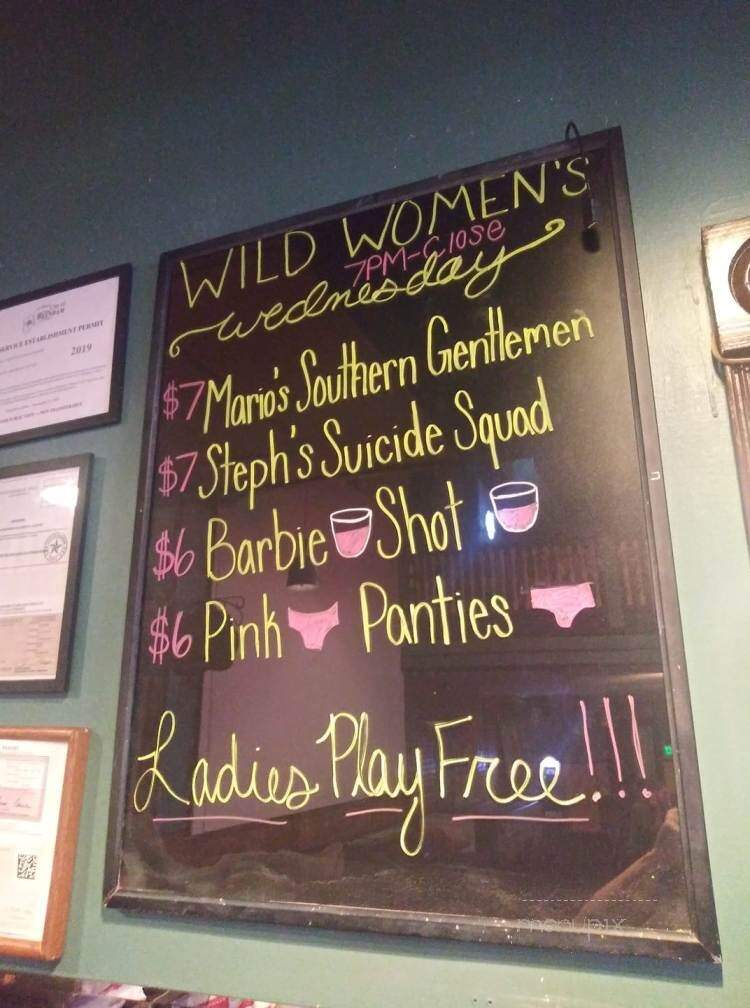 WILD WOMEN'S
7PM-Close
Wednesday
$7 Mario's Southern Gentlemen
$7 Steph's Suicide Squad
$6 Barbie Shot
$6 Pink Panties
Ladies Play Free!!!
SERVICE ESTABLISHMENT PERMIT
2019
menupix